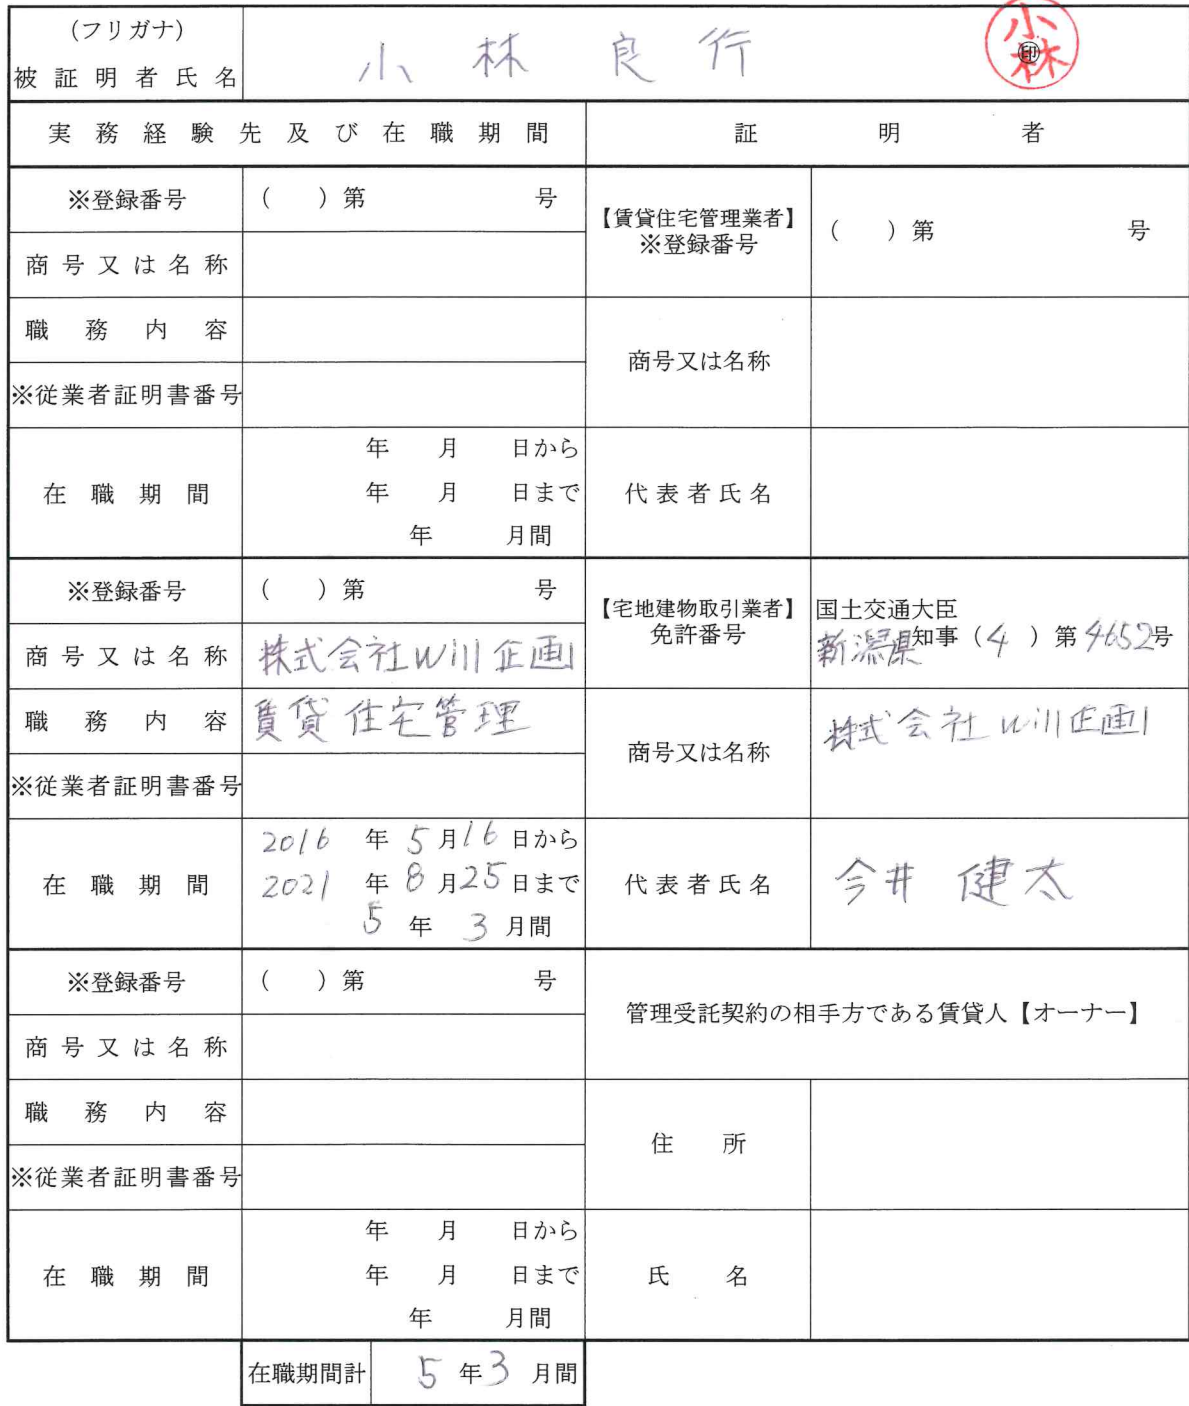 (フリガナ)
被証明者氏名 小林 良行 小林 ㊞
実務経験先及び在職期間 証明者
※登録番号 ( )第 号
【賃貸住宅管理業者】 ※登録番号 ( )第 号
商号又は名称
職務内容
商号又は名称
※従業者証明書番号
在職期間 年 月 日から
年 月 日まで
年 月間
代表者氏名
※登録番号 ( )第 号
【宅地建物取引業者】 免許番号 国土交通大臣
新潟県知事(4)第4652号
商号又は名称 株式会社Will企画
職務内容 賃貸住宅管理
商号又は名称 株式会社Will企画
※従業者証明書番号
在職期間 2016年5月16日から
2021年8月25日まで
5年3月間
代表者氏名 今井 健太
※登録番号 ( )第 号
管理受託契約の相手方である賃貸人【オーナー】
商号又は名称
職務内容
住所
※従業者証明書番号
在職期間 年 月 日から
年 月 日まで
年 月間
氏名
在職期間計 5年3月間